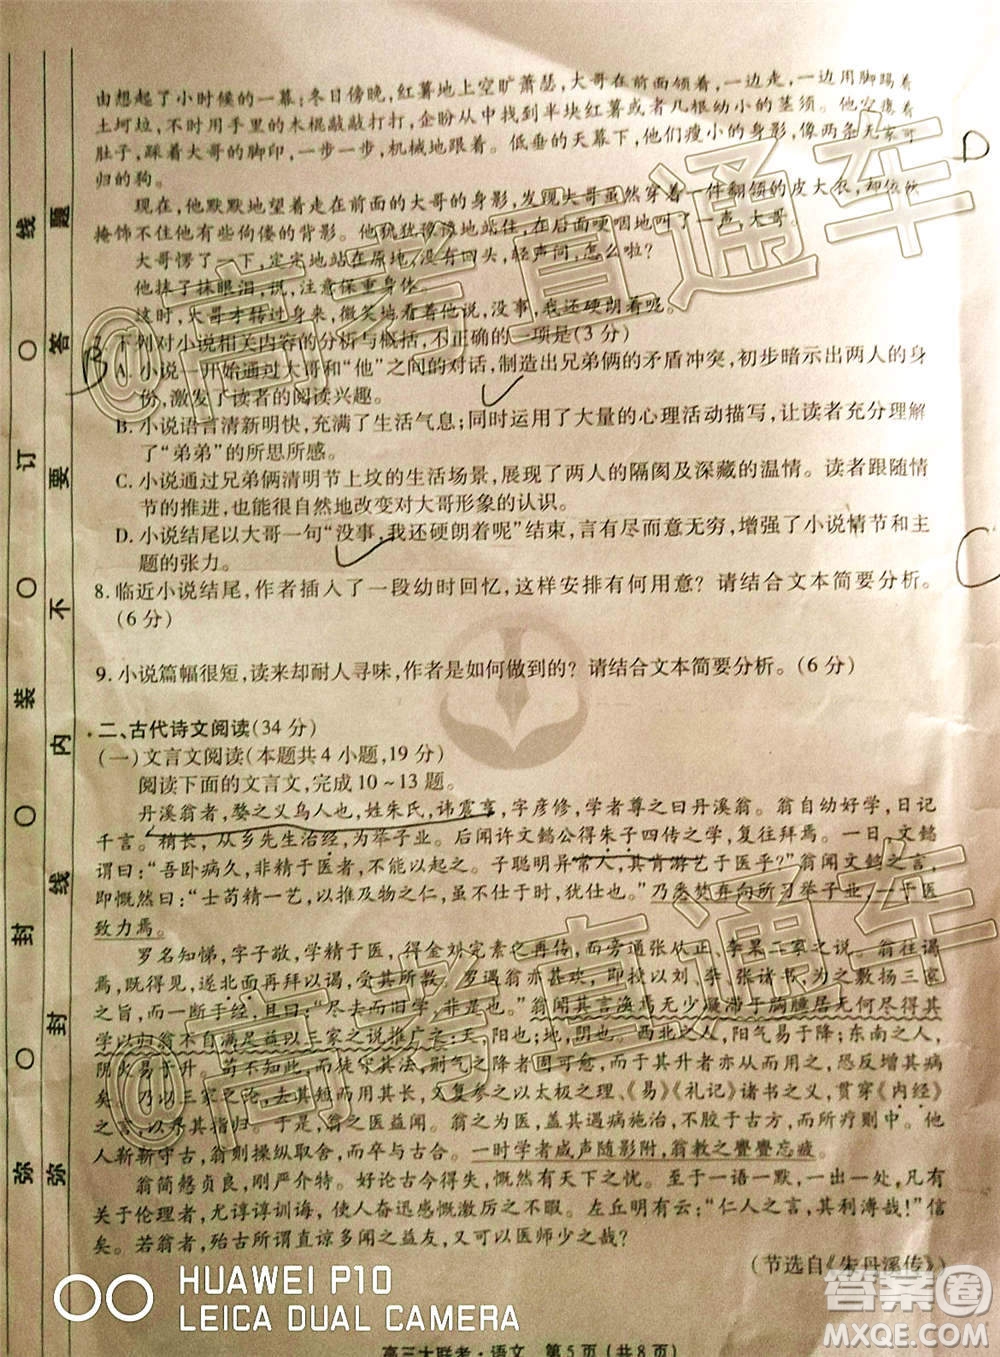 由想起了小时候的一幕：冬日傍晚，红薯地上空旷萧瑟，大哥在前面领着，一边走，一边用脚踢着
土坷垃，不时用手里的木棍敲敲打打，企盼分享找到半块红薯或者几根幼小的茎须。他俩空着
肚子，踩着大哥的脚印，一步一步，机械地跟着。低垂的天幕下，他们瘦小的身影，像两条无家可
归的狗。
现在，他默默地望着走在前面的大哥的身影，发现大哥虽然穿着一件翻领的皮大衣，却依然
掩饰不住已经有些佝偻的背影。他犹犹豫豫地站住，有些哽咽地叫了一声，大哥。
大哥愣了一下，定定地站在原地，没有回头，轻声问，怎么啦？
他捧了抹眼泪，说，注意保重身体。
这时，大哥才转过身来，微笑地看着他说，没事，我还硬朗着呢。
7.下列对小说相关内容的分析与概括，不正确的一项是(3分)
A.小说一开始通过大哥和“他”之间的对话，制造出兄弟俩的矛盾冲突，初步暗示出两人的身
份，激发了读者的阅读兴趣。
B.小说语言清新明快，充满了生活气息；同时运用了大量的心理活动描写，让读者充分理解
了“弟弟”的所思所感。
C.小说通过兄弟俩清明节上坟的生活场景，展现了两人的隔阂及深藏的温情。读者跟随情
节的推进，也很自然地改变对大哥形象的认识。
D.小说结尾以大哥一句“没事，我还硬朗着呢”结束，言有尽而意无穷，增强了小说情节和主
题的张力。
8.临近小说结尾，作者插入了一段幼时回忆，这样安排有何用意？请结合文本简要分析。
(6分)
9.小说篇幅很短，读来却耐人寻味，作者是如何做到的？请结合文本简要分析。(6分)
二、古代诗文阅读(34分)
(一)文言文阅读(本题共4小题，19分)
阅读下面的文言文，完成10～13题。
丹溪翁者，婺之义乌人也，姓朱氏，讳震亨，字彦修，学者尊之曰丹溪翁。翁自幼好学，日记
千言。稍长，从乡先生治经，为举子业。后闻许文懿公得朱子四传之学，复往拜焉。一日，文懿
谓曰：“吾卧病久，非精于医者不能以起之。子聪明异常人，其肯游艺于医乎？”翁闻文懿之言，
即慨然曰：“士苟精一艺，以推及物之仁，虽不仕于时，犹仕也。”乃悉焚弃向所习举子业，一于医
致力焉。
罗名知悌，字子敬，学精于医，得金刘完素之再传，而旁通张从正、李杲二家之说。翁往谒
焉，遂北面再拜以谒，受其所教。罗遇翁亦甚欢，即授以刘、李、张诸书，为之敷扬三家
之旨，而一断于经，且曰：“尽去而旧学，非是也。”翁闻其言涣焉无少凝滞于胸臆居无何尽得其
学以归翁自不满足益以三家之说推广之。天，阳也；地，阴也。西北之人，阳气易于降；东南之人，
阴火易于升。苟不知此，而徒守其法，则气之降者固可愈，而于其升者亦从而用之，吾恐反增其病
矣。乃以三家之论，去其短而用其长，又复参之以太极之理、《易》《礼记》诸书之义，贯穿《内经》
之言，以寻其指归。于是，诸医之笑且排者，始皆心服口誉。翁之为医，遇病施治，不胶于古方，而所疗则中。他
人靳靳守古，翁则操纵取舍，而卒与古合。一时学者咸声随影附，翁教之亹亹忘疲。
翁简悫贞良，刚严介特。好论古今得失，慨然有天下之忧。至于一语一默，一出一处，凡有
关于伦理者，尤谆谆训诲，使人奋迅感慨激厉之不暇。左丘明有云：“仁人之言，其利溥哉！”信
矣。若翁者，殆古所谓直谅多闻之益友，又可以医师少之哉！
(节选自《朱丹溪传》)
高三大联考·语文 第5页(共8页)
弥 封 装 订 线
弥 封 线 内 不 要 答 题
@高考直通车
@高考直通车
HUAWEI P10
LEICA DUAL CAMERA
答案圈
MXQE.COM